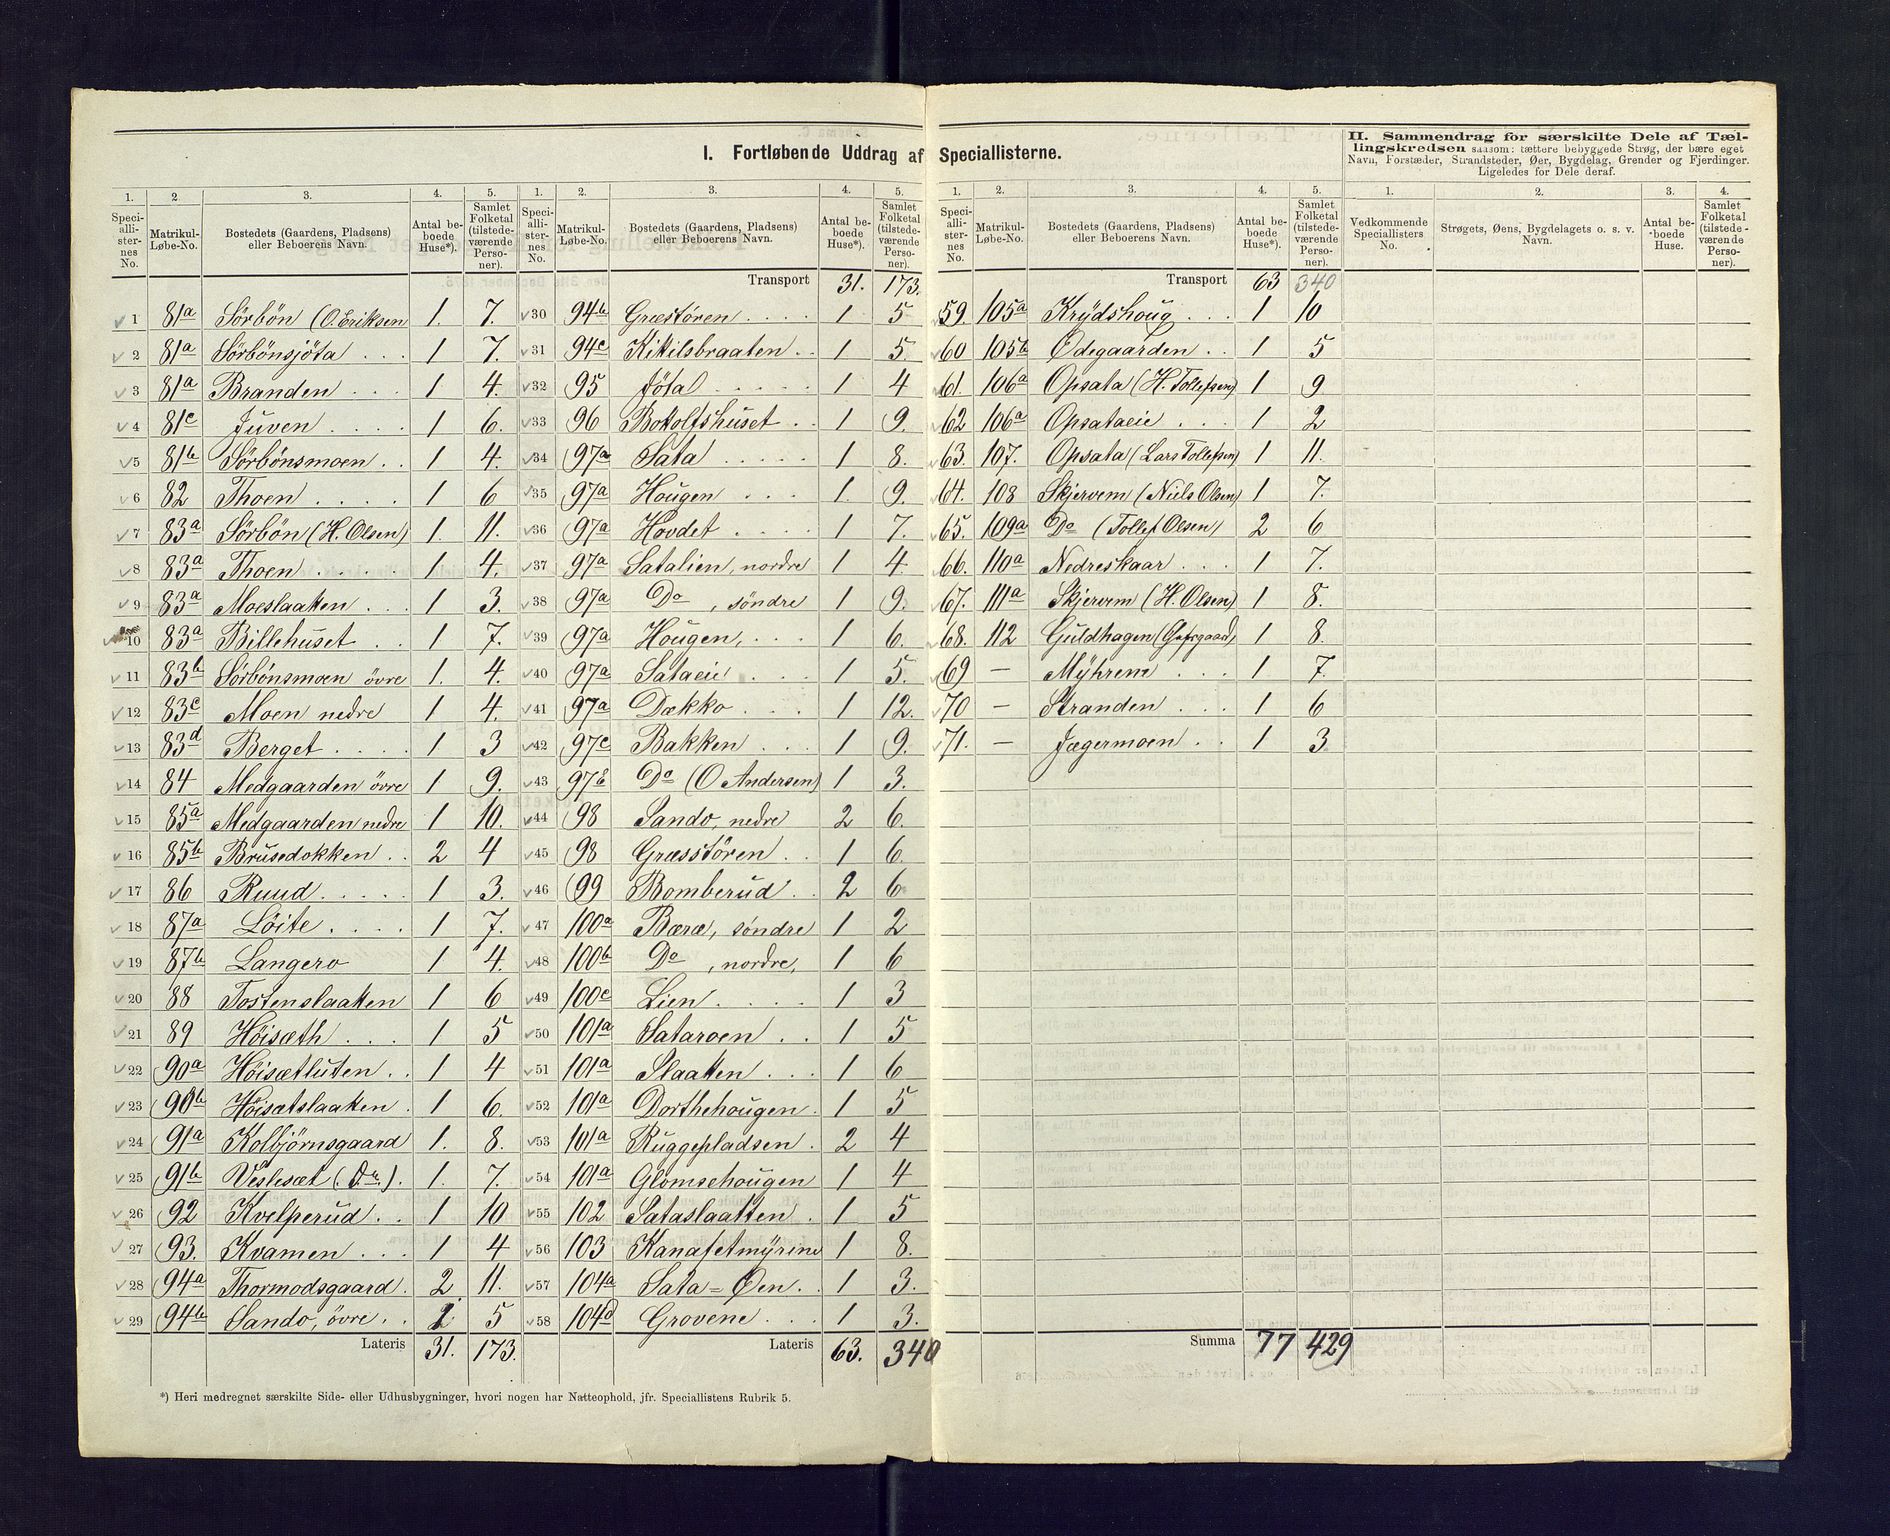 I. Fortløbende Uddrag af Speciallisterne.
II. Sammendrag for særskilte Dele af Tæl-
lingskredsen saasom: tættere bebyggede Strøg, der bære eget
Navn, Forstæder, Strandsteder, Øer, Bygdelag, Grender og Fjerdinger.
Ligeledes for Dele deraf.
1. 2 3. 4. 5. 1. 2. 3. 4. 5. 1. 2. 3. 4. 5. 1. 2. 3. 4.
Speciallisternes No. Matrikul-Løbe-No. Bostedets (Gaardens, Pladsens) eller Beboerens Navn. Antal beboede Huse*). Samlet Folketal (tilstedeværende Personer).
Speciallisternes No. Matrikul-Løbe-No. Bostedets (Gaardens, Pladsens) eller Beboerens Navn. Antal beboede Huse*). Samlet Folketal (tilstedeværende Personer).
Speciallisternes No. Matrikul-Løbe-No. Bostedets (Gaardens, Pladsens) eller Beboerens Navn. Antal beboede Huse*). Samlet Folketal (tilstedeværende Personer).
Vedkommende Speciallisters No. Strøgets, Øens, Bygdelagets o. s. v. Navn. Antal beboede Huse. Samlet Folketal (tilstedeværende Personer).
1 81a Sørbøn (O. Eriksen 1. 7.
2 81a Sørbønsjøta 1 7.
3 81a Branden 1 4.
4 81c Juven 1 6.
5 81b Sørbønsmoen 1 4.
6 82 Thoen 1 6
7 83a Sørbøn (H. Olsen) 1. 11.
8 83a Thoen 1 4.
9 83a Moeslaatten 1 3.
10 83a Billehuset 1 7.
11 83b Sørbønsmoen øvre 1. 4.
12 83c Moen nedre 1 4.
13 83d Berget 1 3
14 84 Medgaarden øvre 1 9.
15 85a Medgaarden nedre 1 10.
16 85b Brusedokken 2 4
17 86 Ruud 1 3.
18 87a Löite 1 7.
19 87b Langero 1 4.
20 88 Tostenslaatten 1 6
21 89 Høisæth 1 5
22 90a Høisætluten 1 4
23 90b Høisætslaatten 1 6.
24 91a Kolbjørnsgaard 1. 8.
25 91b Veslesæt (Do). 1. 7.
26 92 Kvelperud 1 10
27 93. Kvamen 1 4
28 94a Thormodsgaard 2 11.
29 94b Sando, øvre 2 5
Lateris 31. 173.
Transport 31. 173.
30 94b Græstøren 1 5
31 94c Kikilsbraaten 1 5.
32 95 Jøtal 1 4
33 96 Botolfshuset 1 9.
34 97a Sata 1 8.
35 97a Hougen 1. 9.
36 97a Hovdet 1 7.
37 97a Satalien, nordre 1 4.
38 97a Do, søndre 1 9.
39 97a Hougen, 1 6.
40 97a Sataeie 1 5.
41 97a Dækko 1 12.
42 97c Bakken 1 9.
43 97b Do (O Andersen) 1 3.
44 98 Sando, nedre 2 6.
45 98 Græsstøren 1 6.
46 99 Bomberud 2 6
47 100a Bæræ, søndre 1 2
48 100b Do, nordre, 1 6
49 100c Lien 1 3
50 101a Sataroen 1 5
51 101a Slaatten 1 6
52 101a Dorthehougen 1 5
53 101a Ruggepladsen 2 4
54 101a Glomsehougen 1 4
55 102 Sataslaatten 1 5
56 103 Kanafetmyrene 1 8.
57 104a Sata=Øen 1 3.
58 104d Grovene 1 3.
Lateris 63. 340
Transport 63 340
59. 105a Krydshoug 1 10
60 105b Ødegaarden 1 5
61. 106a Opsata (H. Tollefsen) 1 9
62 106a Opsataeie 1 2
63. 107. Opsata (Lars Tollefsen) 1 11.
64. 108 Skjervem (Niels Olsen) 1 7.
65. 109a Do (Tollef Olsen) 2 6
66. 110a Nedreskaar 1 7.
67. 111a Skjervem (H. Olsen) 1 8.
68. 112 Guldhagen 1 8.
69 — Myhrene 1 7
70 — Stranden 1 6
71. — Jægermoen 1 3
Summa 77 429
*) Heri medregnet særskilte Side- eller Udhusbygninger, hvori nogen har Natteophold, jfr. Speciallistens Rubrik 5.